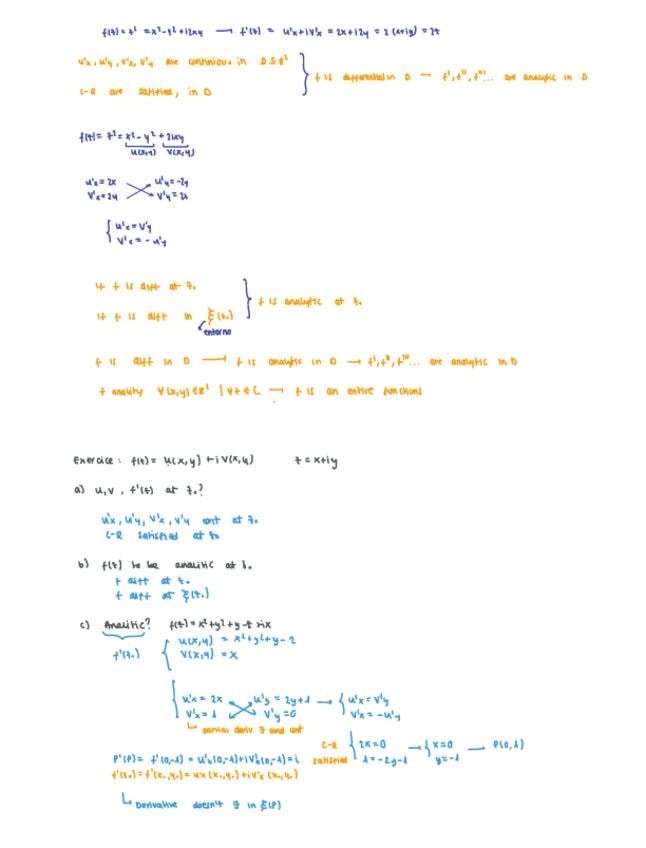 f(z) = z² = x²-y²+i2xy → f'(z) = u'x + iv'x = 2x+i2y = 2(x+iy) = 2z
u'x, u'y, v'x, v'y are continuous in D⊆ℝ²
C-R are satisfied, in D
f is differential in D → f', f'', f'''... are analytic in D
f(z) = z² = x² - y² + 2ixy
u(x,y) v(x,y)
u'x = 2x u'y = -2y
v'x = 2y v'y = 2x
u'x = v'y
v'x = -u'y
if f is diff at z₀
if f is diff in ξ(z₀)
f is analytic at z₀
entorno
f is diff in D → f is analytic in D → f', f'', f'''... are analytic in D
f anality ∀(x,y) ∈ ℝ² | ∀z ∈ C → f is an entire functions
Exercice: f(z) = u(x,y) + iv(x,y) z = x+iy
a) u, v, f'(z) at z₀?
u'x, u'y, v'x, v'y cont at z₀
C-R satisfied at z₀
b) f(z) to be analitic at z₀
f diff at z₀
f diff at ξ(z₀)
c) Analitic? f(z) = x²+y²+y-2+ix
f'(z₀)
u(x,y) = x²+y²+y-2
v(x,y) = x
u'x = 2x u'y = 2y+1 → u'x = v'y
v'x = 1 v'y = 0 v'x = -u'y
partial deriv ∃ and cont
C-R satisfied
2x=0 → x=0 → P(0,1)
1=-2y-1 y=-1
f'(P) = f'(0,-1) = u'x(0,-1)+iv'x(0,-1) = i
f'(z₀) = f'(x₀,y₀) = u'x(x₀,y₀)+iv'x(x₀,y₀)
Derivative doesn't ∃ in ξ(P)